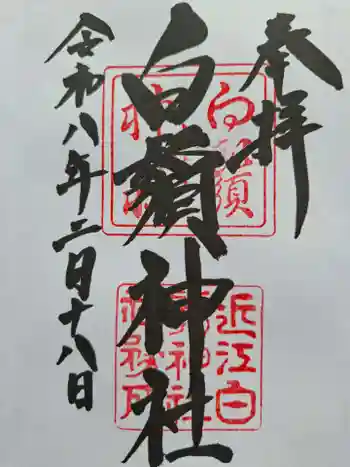 奉拝
白鬚神社
令和八年二月十八日
白鬚
近江白
神社